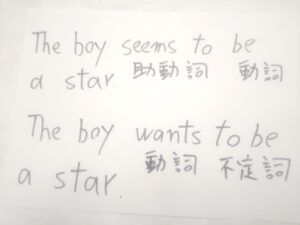 The boy seems to be
a star. 助動詞 動詞
The boy wants to be
a star. 動詞 不定詞